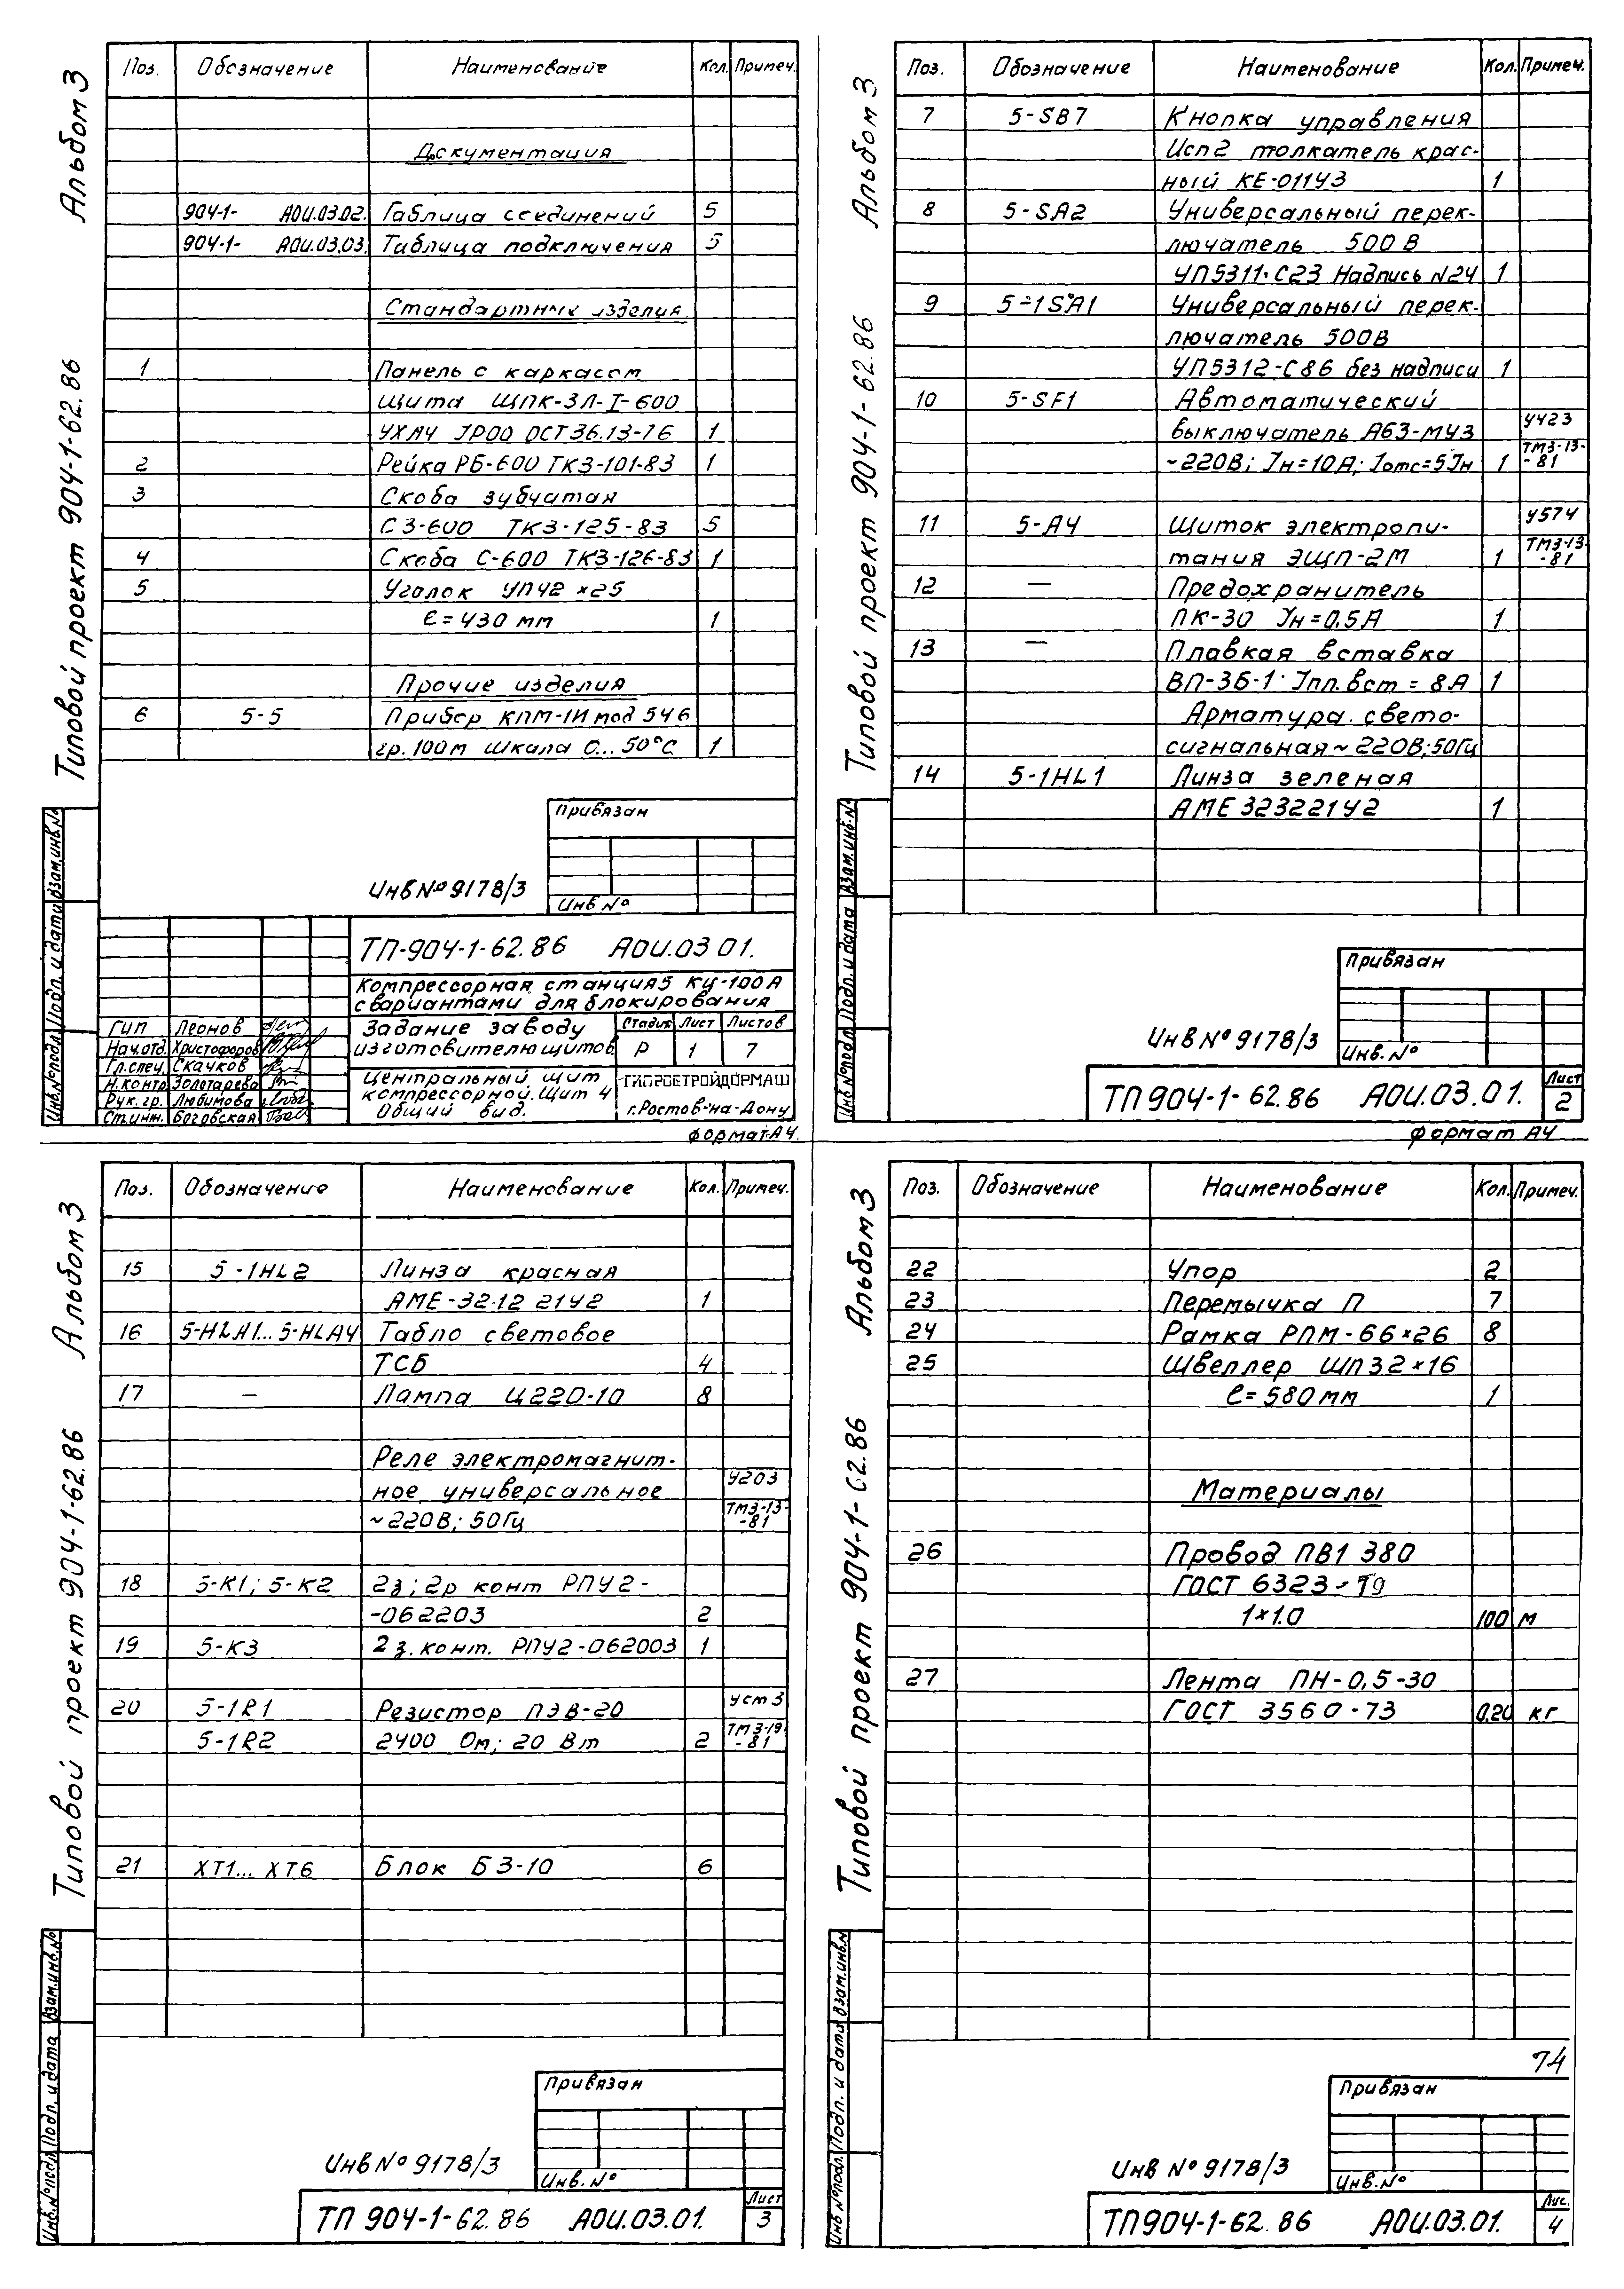 Альбом 3
Типовой проект 904-1-62.86
Поз. Обозначение Наименование Кол. Примеч.
Документация
904-1- АОИ.03.02. Таблица соединений 5
904-1- АОИ.03.03. Таблица подключения 5
Стандартные изделия
1 Панель с каркасом
щита ЩПК-ЗЛ-I-600
УХЛ4 IP00 ОСТ 36.13-76 1
2 Рейка РБ-600 ТК3-101-83 1
3 Скоба зубчатая
СЗ-600 ТК3-125-83 5
4 Скоба С-600 ТК3-126-83 1
5 Уголок УП42×25
ℓ=430 мм 1
Прочие изделия
6 5-5 Прибор КПМ-1И мод 546
гр. 100м шкала 0...50°С 1
Привязан
Инв №9178/3
Инв №
ТП-904-1-62.86 АОИ.03 01.
Компрессорная станция 5 КЦ-100А
с вариантами для блокирования
Гип Леонов
Нач.отд. Христофоров
Гл.спец. Скачков
Н.контр Золотарева
Рук.гр. Любимова
Ст.инж. Боговская
Задание заводу
изготовителю щитов
Стадия Лист Листов
Р 1 7
Центральный щит
компрессорной. Щит 4
Общий вид.
ГИПРОСТРОЙДОРМАШ
г.Ростов-на-Дону
Взам.инв.№
Подп. и дата
Инв.№ подл.
Формат А4.
Альбом 3
Типовой проект 904-1-62.86
Поз. Обозначение Наименование Кол. Примеч.
7 5-SB7 Кнопка управления
Исп 2 толкатель крас-
ный КЕ-011У3 1
8 5-SA2 Универсальный перек-
лючатель 500 В
УП5311-С23 Надпись N24 1
9 5-1SA1 Универсальный перек-
лючатель 500В
УП5312-С86 без надписи 1
10 5-SF1 Автоматический
выключатель А63-МУ3 У423
~220В; Iн=10А; Iотс=5Iн 1 ТМ3-13-
-81
11 5-А4 Щиток электропи- У574
тания ЭЩП-2М 1 ТМ3-13-
-81
12 — Предохранитель
ПК-30 Iн=0.5А 1
13 — Плавкая вставка
ВП-3Б-1 Iпл.вст = 8А 1
Арматура свето-
сигнальная ~220В; 50Гц
14 5-1HL1 Линза зеленая
АМЕ 323221У2 1
Привязан
Инв №9178/3
Инв. №
ТП904-1-62.86 АОИ.03.01.
Лист
2
Взам.инв.№
Подп. и дата
Инв № подл
Формат А4
Альбом 3
Типовой проект 904-1-62.86
Поз. Обозначение Наименование Кол. Примеч.
15 5-1HL2 Линза красная
АМЕ-32·12 21У2 1
16 5-HLA1...5-HLA4 Табло световое
ТСБ 4
17 — Лампа Ц220-10 8
Реле электромагнит-
ное универсальное У203
~220В; 50Гц ТМ3-13-
-81
18 5-К1; 5-К2 2з; 2р конт РПУ2-
-062203 2
19 5-К3 2 з. конт. РПУ2-062003 1
20 5-1R1 Резистор ПЭВ-20 уст 3
5-1R2 2400 Ом; 20 Вт 2 ТМ3-19-
-81
21 XT1... XT6 Блок БЗ-10 6
Привязан
Инв №9178/3
Инв. №
ТП 904-1-62.86 АОИ.03.01.
Лист
3
Взам.инв.№
Подп. и дата
Инв.№ подл
Альбом 3
Типовой проект 904-1-62.86
Поз. Обозначение Наименование Кол. Примеч.
22 Упор 2
23 Перемычка П 7
24 Рамка РПМ-66×26 8
25 Швеллер ШП32×16
ℓ=580 мм 1
Материалы
26 Провод ПВ1 380
ГОСТ 6323-79
1×1.0 100 м
27 Лента ПН-0,5-30
ГОСТ 3560-73 0.20 кг
74
Привязан
Инв №9178/3
Инв.№
ТП904-1-62.86 АОИ.03.01.
Лис.
4
Взам.инв.№
Подп. и дата
Инв № подл.